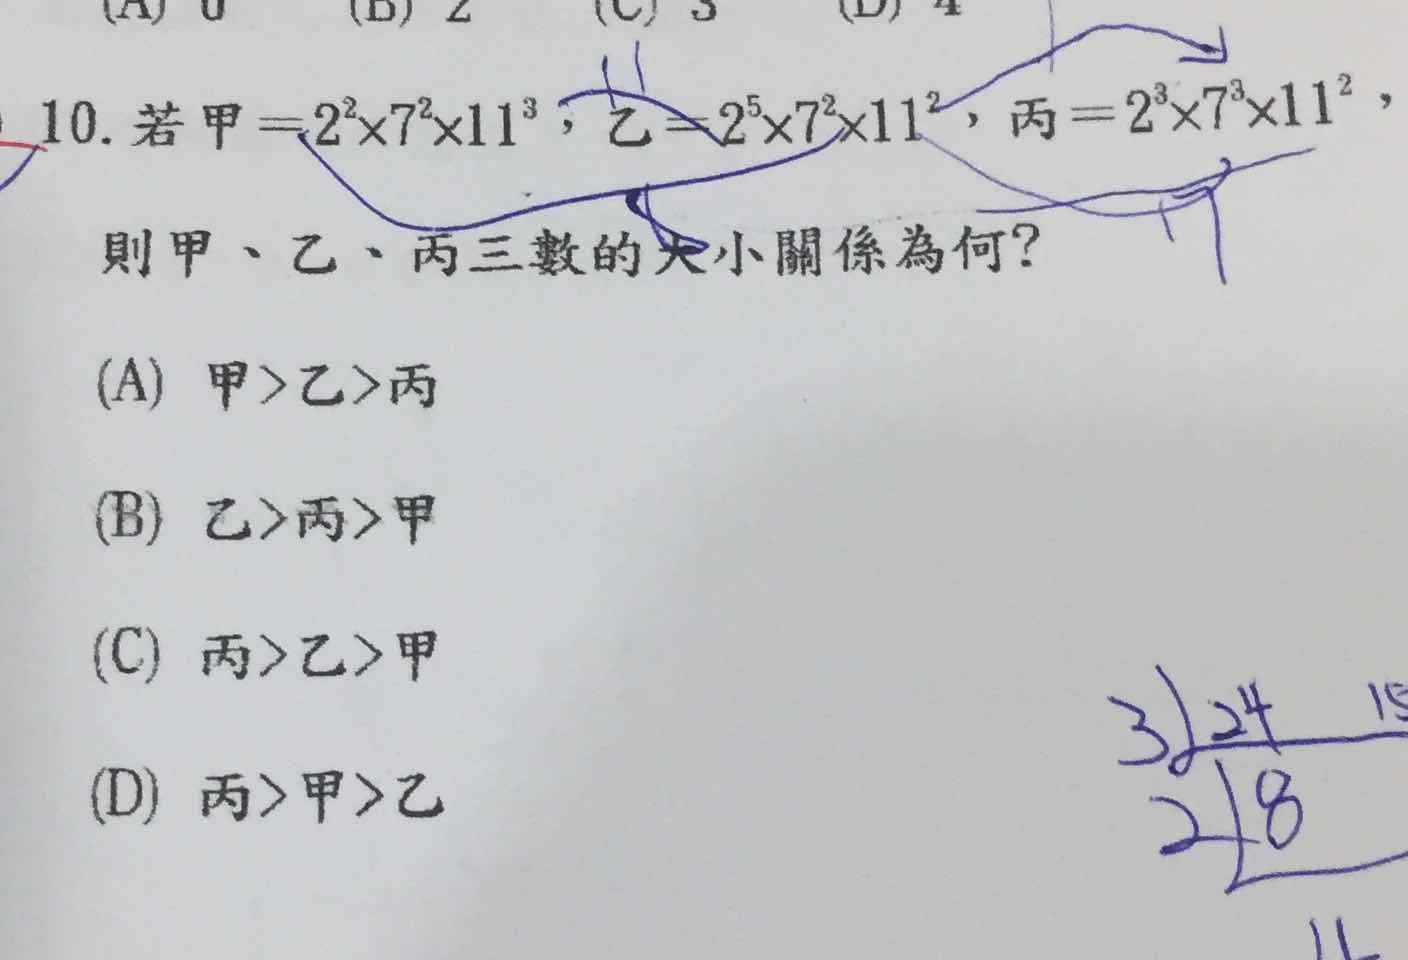 (A) 0 (B) 2 (C) 3 (D) 4
10. 若甲=2²×7²×11³，乙=2⁵×7²×11²，丙=2³×7³×11²，
則甲、乙、丙三數的大小關係為何?
(A) 甲>乙>丙
(B) 乙>丙>甲
(C) 丙>乙>甲
(D) 丙>甲>乙
3 24 15
2 8